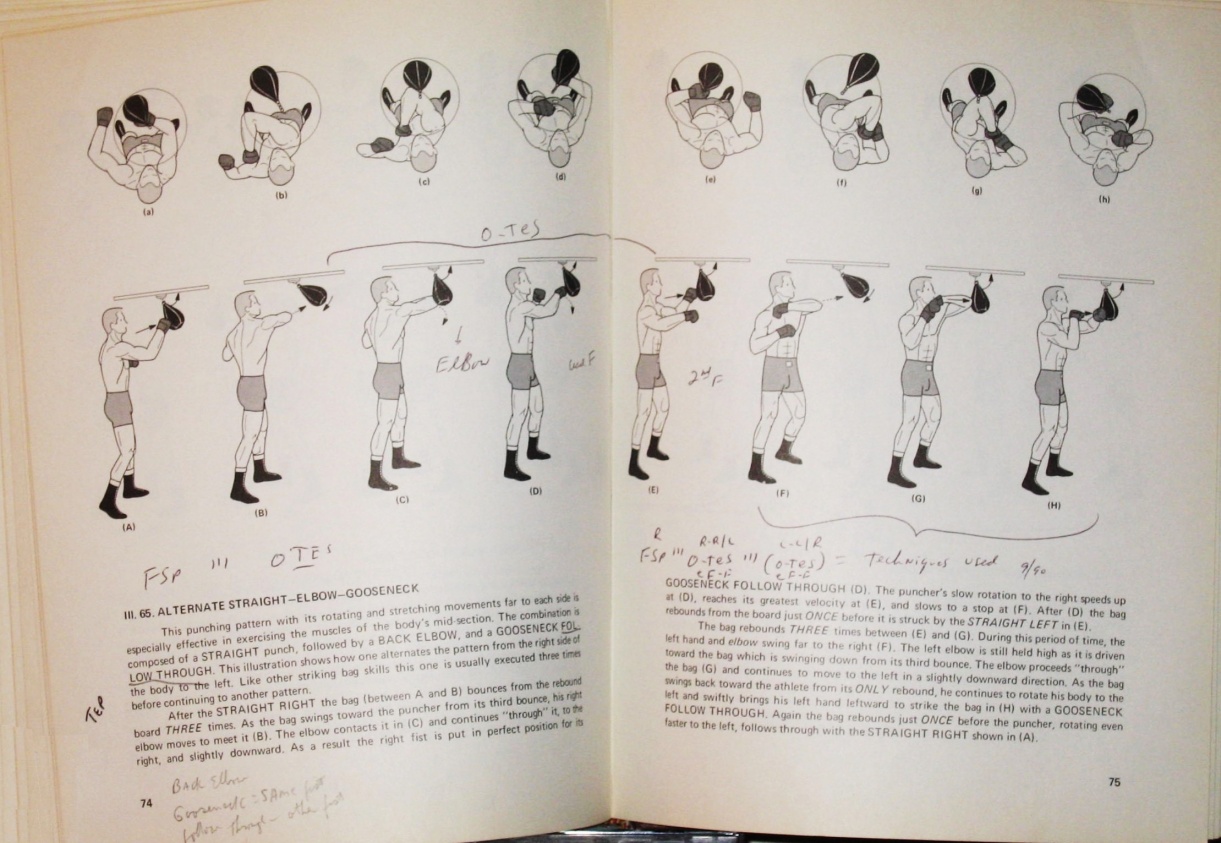 (a)
(b)
(c)
(d)
O-TeS
ElBow
(A)
(B)
(C)
(D)
FSp ''' OTES
III. 65. ALTERNATE STRAIGHT—ELBOW—GOOSENECK
This punching pattern with its rotating and stretching movements far to each side is
especially effective in exercising the muscles of the body's mid-section. The combination is
composed of a STRAIGHT punch, followed by a BACK ELBOW, and a GOOSENECK FOL-
LOW THROUGH. This illustration shows how one alternates the pattern from the right side of
the body to the left. Like other striking bag skills this one is usually executed three times
before continuing to another pattern.
After the STRAIGHT RIGHT the bag (between A and B) bounces from the rebound
board THREE times. As the bag swings toward the puncher from its third bounce, his right
elbow moves to meet it (B). The elbow contacts it in (C) and continues "through" it, to the
right, and slightly downward. As a result the right fist is put in perfect position for its
TEP
Back Elbow
Gooseneck = SAme fist
follow through - other fist
74
(e)
(f)
(g)
(h)
2nd F
(E)
(F)
(G)
(H)
R R-R/L L-L/R
FSp ''' O-TeS ''' (O-TeS) = Techniques used 9/90
eF-F eF-F
GOOSENECK FOLLOW THROUGH (D). The puncher's slow rotation to the right speeds up
at (D), reaches its greatest velocity at (E), and slows to a stop at (F). After (D) the bag
rebounds from the board just ONCE before it is struck by the STRAIGHT LEFT in (E).
The bag rebounds THREE times between (E) and (G). During this period of time, the
left hand and elbow swing far to the right (F). The left elbow is still held high as it is driven
toward the bag which is swinging down from its third bounce. The elbow proceeds "through"
the bag (G) and continues to move to the left in a slightly downward direction. As the bag
swings back toward the athlete from its ONLY rebound, he continues to rotate his body to the
left and swiftly brings his left hand leftward to strike the bag in (H) with a GOOSENECK
FOLLOW THROUGH. Again the bag rebounds just ONCE before the puncher, rotating even
faster to the left, follows through with the STRAIGHT RIGHT shown in (A).
75